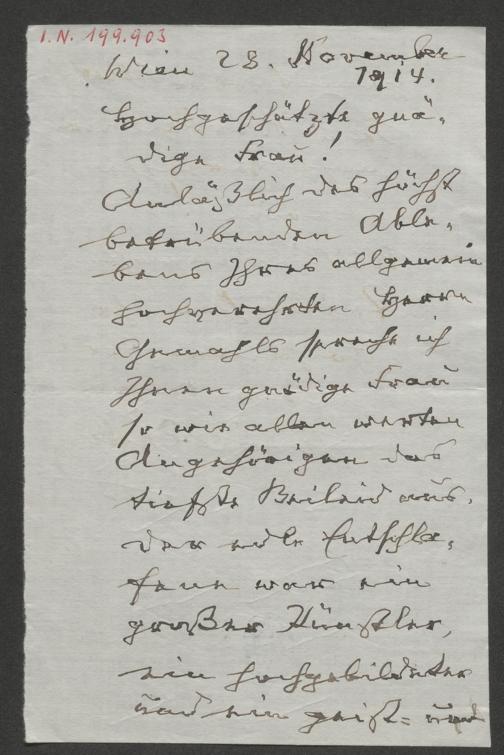 I. N. 199.903
Wien 28. November
1914.
Hochgeschätzte gnä-
dige Frau!
Anläßlich des höchst
betrübenden Able-
bens Ihres allgemein
hochverehrten Herrn
Gemahls spreche ich
Ihnen gnädige Frau
so wie allen werten
Angehörigen das
tiefste Beileid aus.
Der edle Entschla-
fene war ein
großer Künstler,
ein hochgebildeter
und ein geist= und